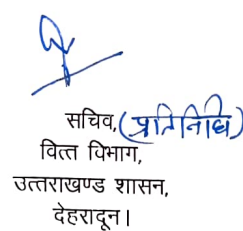 सचिव, (प्रतिनिधि)
वित्त विभाग,
उत्तराखण्ड शासन,
देहरादून।